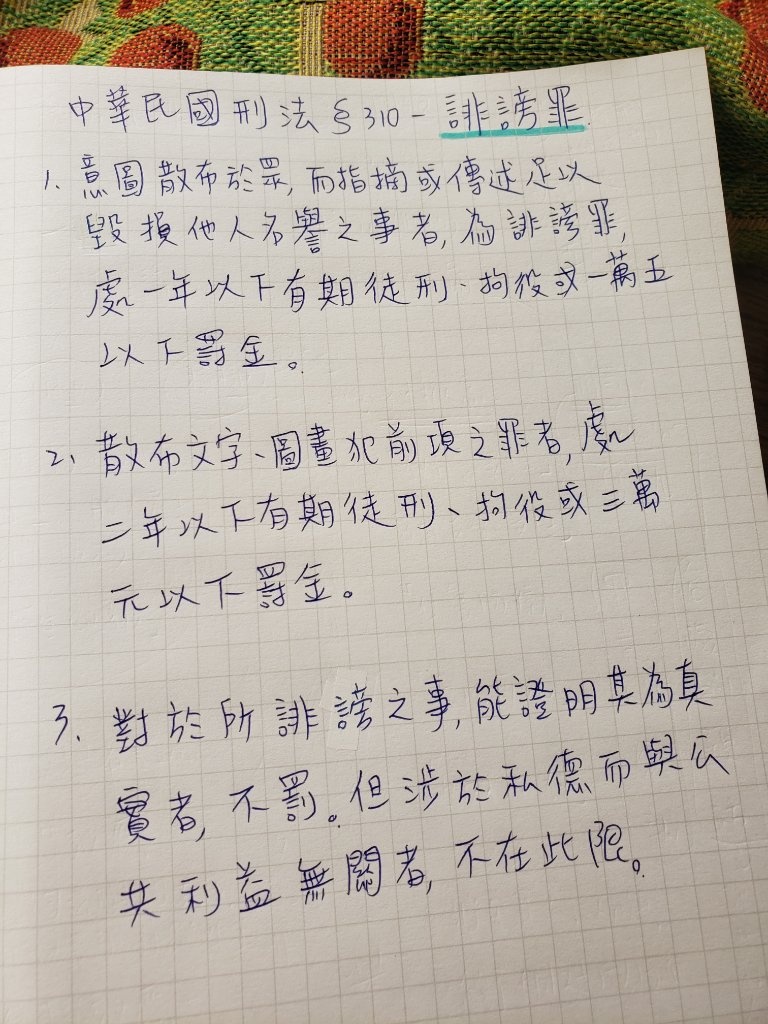 中華民國刑法§310-誹謗罪
1. 意圖散布於眾,而指摘或傳述足以
毀損他人名譽之事者,為誹謗罪,
處一年以下有期徒刑、拘役或一萬五
以下罰金。
2、散布文字、圖畫犯前項之罪者,處
二年以下有期徒刑、拘役或三萬
元以下罰金。
3. 對於所誹謗之事,能證明其為真
實者,不罰。但涉於私德而與公
共利益無關者,不在此限。